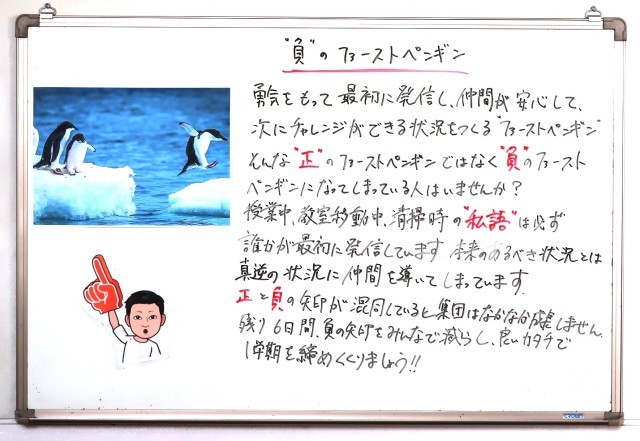 "負"のファーストペンギン
勇気をもって最初に発信し、仲間が安心して、
次にチャレンジができる状況をつくる"ファーストペンギン"
そんな"正"のファーストペンギンではなく"負"のファースト
ペンギンになってしまっている人はいませんか?
授業中、教室移動中、清掃時の"私語"は必ず
誰かが最初に発信しています。本来のあるべき状況とは
真逆の状況に仲間を導いてしまっています。
正と負の矢印が混同していると集団はなかなか成長しません。
残り6日間、負の矢印をみんなで減らし、良いカタチで
1学期を締めくくりましょう!!